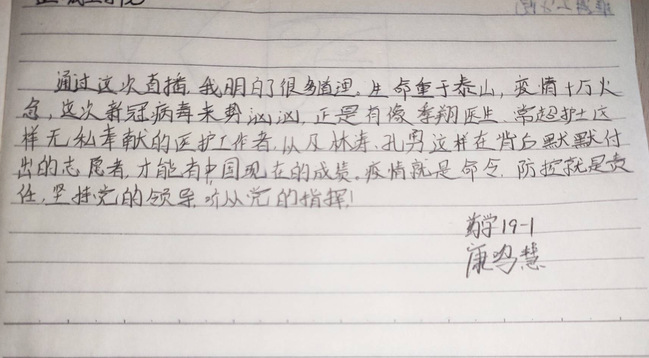 通过这次直播,我明白了很多道理,生命重于泰山,疫情十万火
急,这次新冠病毒来势汹汹,正是有像李翔医生,常超护士这
样无私奉献的医护工作者,以及林涛、孔勇这样在背后默默付
出的志愿者,才能有中国现在的成绩。疫情就是命令,防控就是责
任,坚持党的领导,听从党的指挥!
药学19-1
康鸣慧